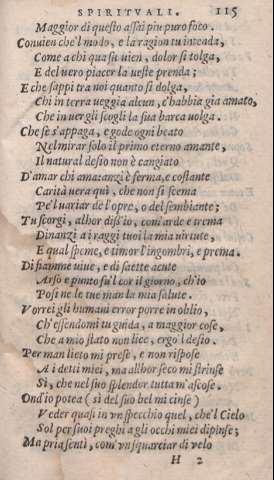 SPIRITVALI. 115
Maggior di questo assai piu puro foco.
Conuien che'l modo, e la ragion tu intenda,
Come a chi qua sù vien, dolor si tolga,
E del uero piacer la ueste prenda;
E che sappi tra noi quanto si dolga,
Chi in terra ueggia alcun, c'habbia gia amato,
Che in uer gli scogli la sua barca uolga.
Che se s'appaga, e gode ogni beato
Nel mirar solo il primo eterno amante,
Il natural desio non è cangiato
D'amar chi amazanzi è ferma, e costante
Carità uera quì, che non si scema
Pe'l uariar de l'opre, o del sembiante;
Tu scorgi, alhor diss'io, com'arde e trema
Dinanzi a i raggi tuoi la mia uirtute,
E qual speme, e timor l'ingombri, e prema.
Di fiamme uiue, e di saette acute
Arso e punto fu'l cor il giorno, ch'io
Posi ne le tue man la mia salute.
Vorrei gli humani error porre in oblio,
Ch'essendomi tu guida, a maggior cose,
Che a mio stato non lice, ergo'l desio.
Per man lieto mi prese, e non rispose
A i detti miei, ma allhor seco mi strinse
Sì, che nel suo splendor tutta m'ascose.
Ond'io potea (sì del suo bel mi cinse)
Veder quasi in vn specchio quel, che'l Cielo
Sol per suoi preghi a gli occhi miei dipinse;
Ma pria sentì, com'vn squarciar di velo
H 2